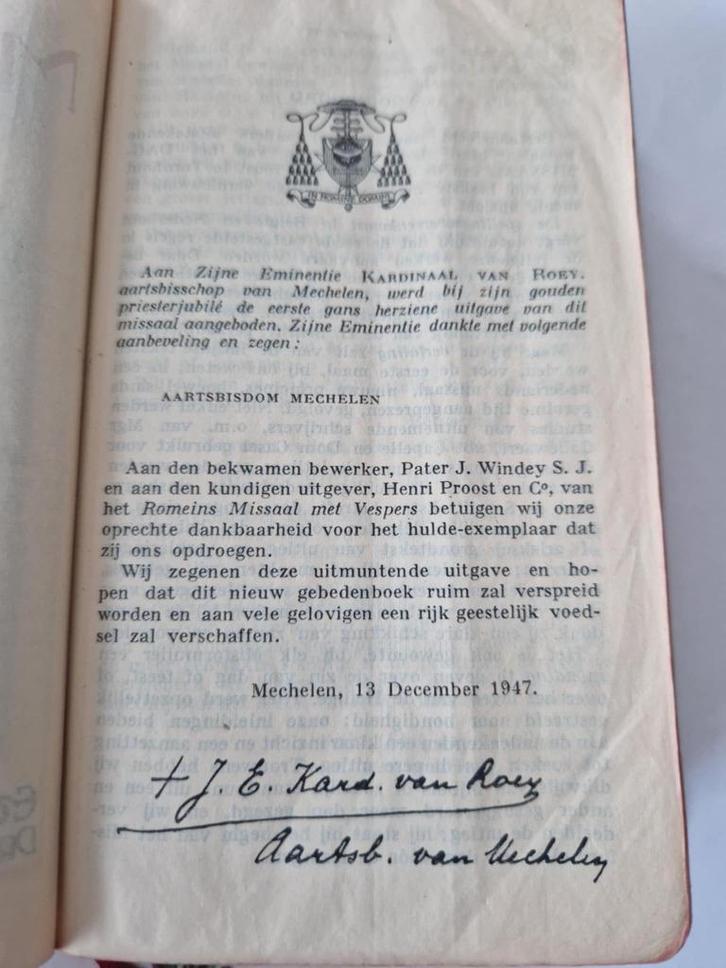 IN NOMINE DOMINI
Aan Zijne Eminentie KARDINAAL VAN ROEY,
aartsbisschop van Mechelen, werd bij zijn gouden
priesterjubilé de eerste gans herziene uitgave van dit
missaal aangeboden. Zijne Eminentie dankte met volgende
aanbeveling en zegen :
AARTSBISDOM MECHELEN
Aan den bekwamen bewerker, Pater J. Windey S. J.
en aan den kundigen uitgever, Henri Proost en Cº, van
het Romeins Missaal met Vespers betuigen wij onze
oprechte dankbaarheid voor het hulde-exemplaar dat
zij ons opdroegen.
Wij zegenen deze uitmuntende uitgave en ho-
pen dat dit nieuw gebedenboek ruim zal verspreid
worden en aan vele gelovigen een rijk geestelijk voed-
sel zal verschaffen.
Mechelen, 13 December 1947.
+ J. E. Kard. van Roey
Aartsb. van Mechelen